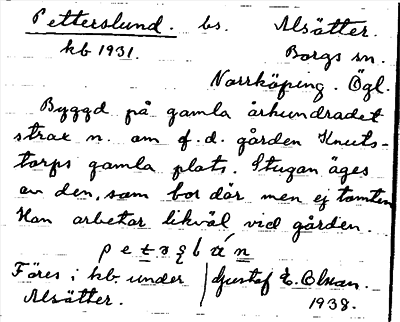 Petterslund. bs. Alsätter.
kb 1931. Borgs sn.
Norrköping. Ögl.
Byggd på gamla århundradet
strax n. om f.d. gården Knuts-
torps gamla plats. Stugan äges
av den, som bor där men ej tomten
Han arbetar likväl vid gården.
Föres i kb. under Gustaf E. Olsson.
Alsätter. 1938.